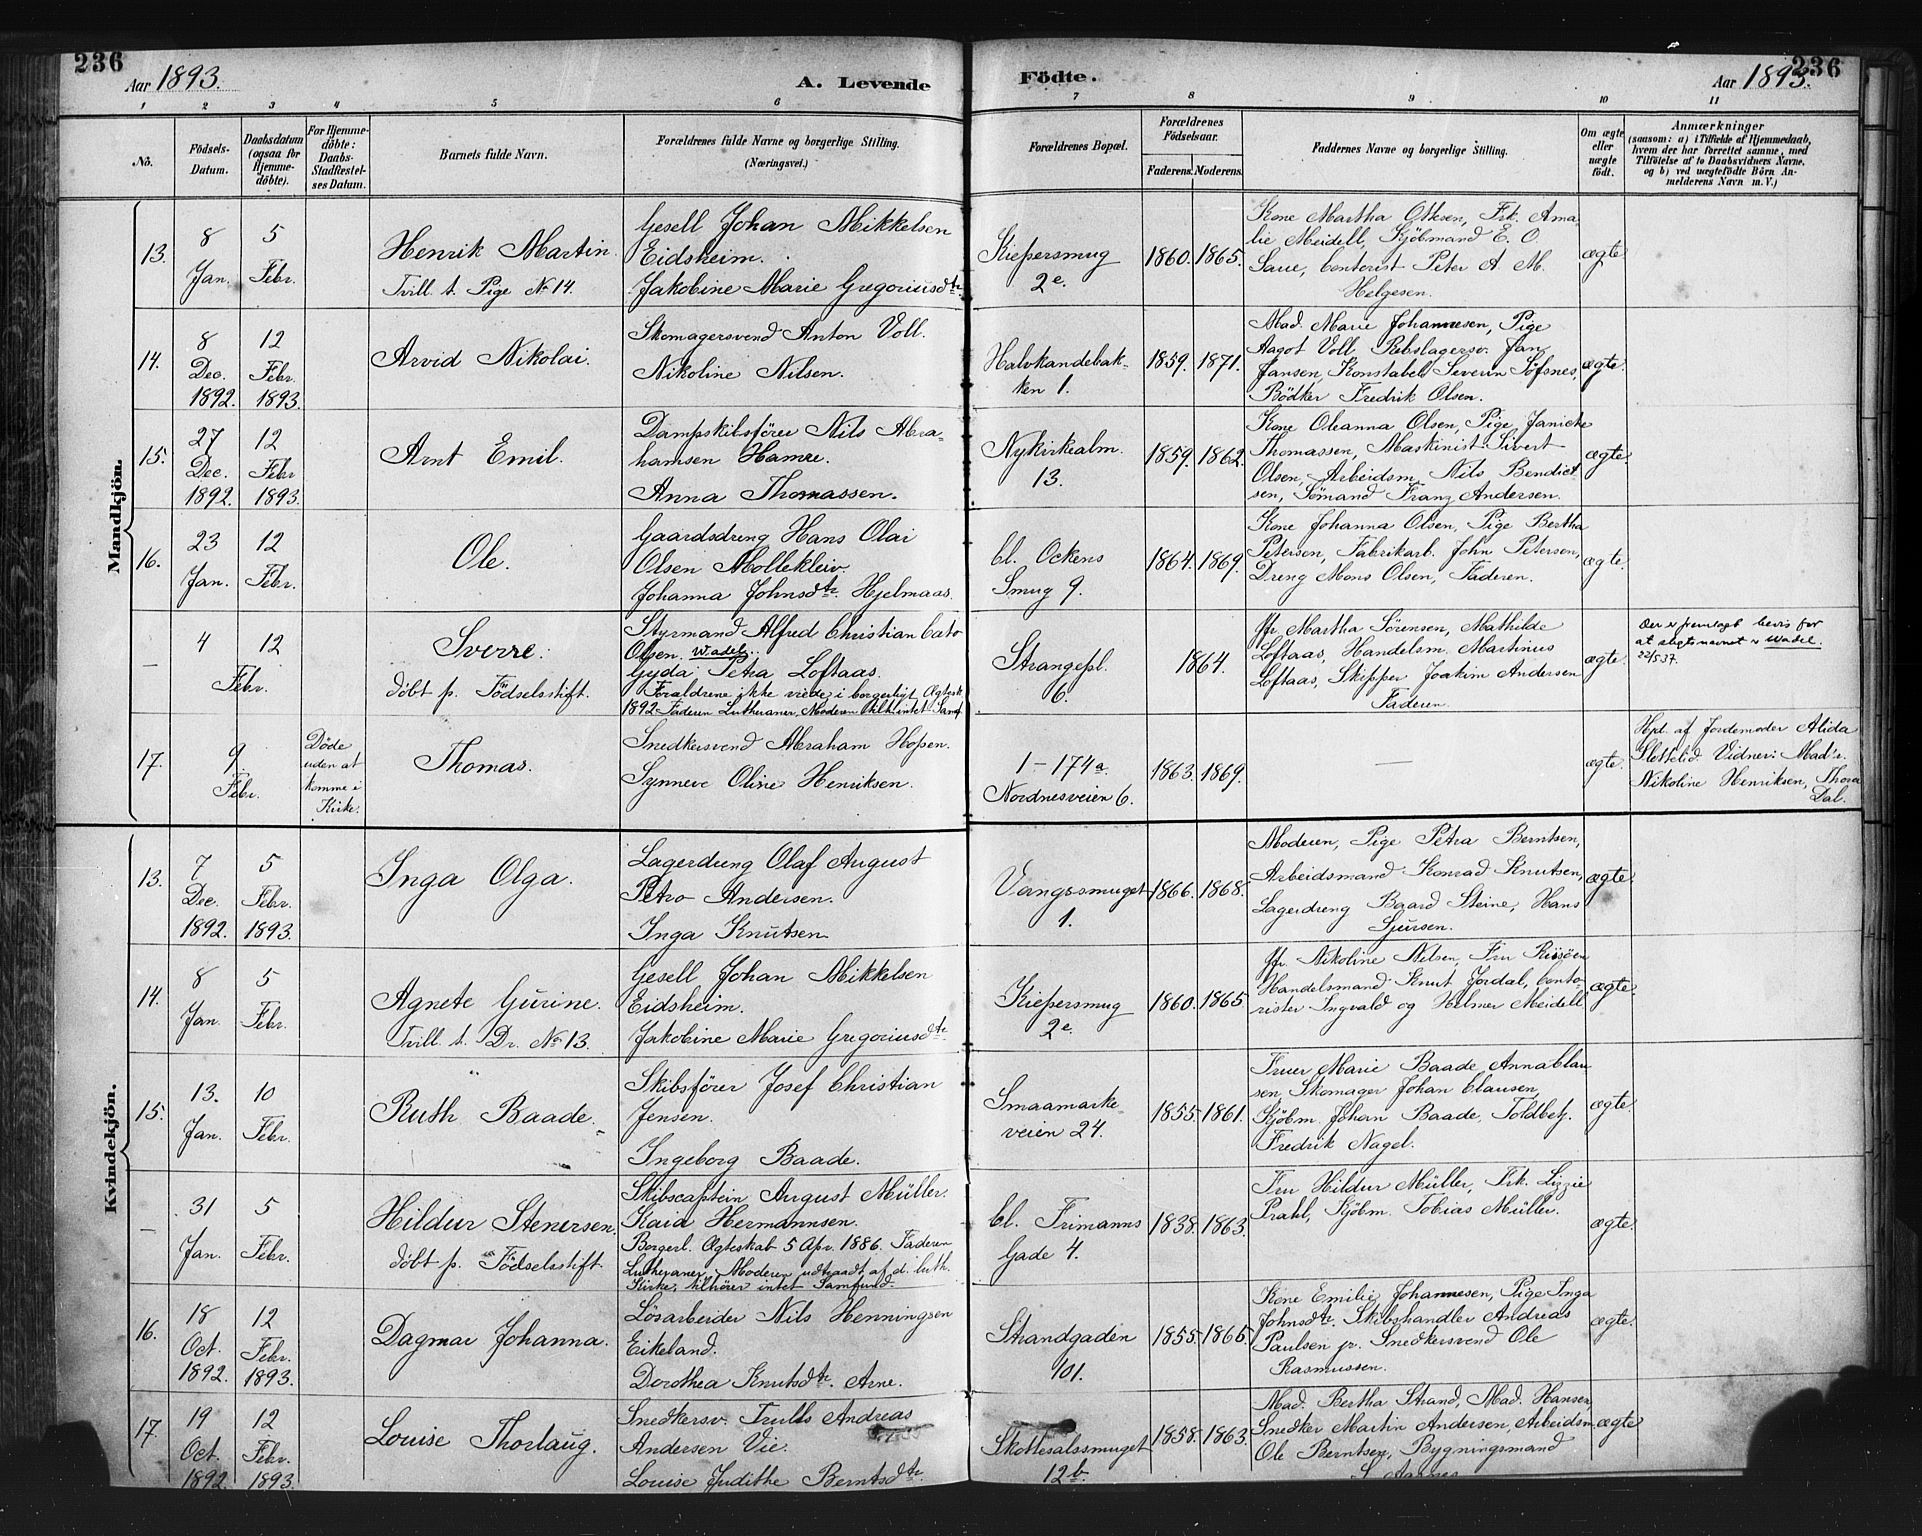 236
Aar 1893.
A. Levende
Födte.
Aar 1893.
236
1 2 3 4 5 6 7 8 9 10 11
No.
Födsels-
Datum.
Daabsdatum
(ogsaa for
Hjemme-
döbte).
For Hjemme-
döbte:
Daabs-
Stadfæstel-
ses Datum.
Barnets fulde Navn.
Forældrenes fulde Navne og borgerlige Stilling.
(Næringsvei.)
Forældrenes Bopæl.
Forældrenes
Födselsaar.
Faderens. Moderens.
Faddernes Navne og borgerlige Stilling.
Om ægte
eller
uægte
født.
Anmærkninger
(saasom: a) i Tilfælde af Hjemmedaab,
hvem der har forrettet samme, med
Tilföielse af to Daabsvidners Navne,
og b) ved uægtefödte Börn An-
melderens Navn m. V.)
Mandkjön.
13.
8
Jan.
5
Febr.
Henrik Martin
Tvill. t. Pige No 14.
Gesell Johan Mikkelsen
Eidsheim.
Jakobine Marie Gregoriusdtr.
Kiepersmug
2e.
1860. 1865.
Kone Martha Ottesen, Frk. Ama-
lie Meidell, Kjöbmand E. O.
Saue, Contorist Peter A. M.
Helgesen.
ægte
14.
8
Dec.
1892.
12
Febr.
1893.
Arvid Nikolai.
Skomagersvend Anton Voll.
Nikoline Nilsen.
Halvkandebak-
ken 1.
1859. 1871.
Mad. Marie Johannesen, Pige
Aagot Voll, Rebslagersv. Jan
Jansen, Konstabel Severin Söfsnes,
Bödker Fredrik Olsen.
ægte.
15.
27
Dec.
1892.
12
Febr
1893.
Arnt Emil.
Dampskibsförer Nils Abra-
hamsen Hamre.
Anna Thomassen.
Nykirkealm.
13.
1859. 1862.
Kone Oleanna Olsen, Pige Janicke
Thomassen, Maskinist Sivert
Olsen, Arbeidsm. Nils Bendict-
sen, Sömand Franz Andersen.
ægte.
16.
23
Jan.
12
Febr.
Ole.
Gaardsdreng Hans Olai
Olsen Mollekleiv.
Johanna Johnsdtr. Hjelmaas.
Cl. Ockens
Smug 9.
1864. 1869.
Kone Johanna Olsen, Pige Bertha
Petersen, Fabrikarb. John Petersen,
Dreng Mons Olsen, Faderen.
ægte.
—
4
Febr.
12
Sverre.
døbt p. Födselsstift.
Styrmand Alfred Christian Cato
Olsen. Wadel.
Gyda Petra Loftaas.
Forældrene ikke viede, i borgerligt Ægtesk.
1892. Faderen Lutheraner, Moderen tilh. intet Samf.
Strangepl.
6.
1864.
Jfr. Martha Sörensen, Mathilde
Loftaas, Handelsm. Martinus
Loftaas, Skipper Joakim Andersen
Faderen.
ægte.
Der er fremlagt bevis for
at slegtsnavnet er Wadel.
22/5 37.
17.
9.
Febr.
Döde
uden at
komme i
Kirke.
Thomas.
Snedkersvend Abraham Hopsen.
Synneve Oline Henriksen.
1 – 174a
Nordnesveien 6.
1863. 1869.
—
ægte.
Hpl. af Jordemoder Alida
Slettelid. Vidner: Mad'r.
Nikoline Henriksen, Thora
Dal.
Kvindekjön.
13.
7
Dec.
1892.
5
Febr.
1893.
Inga Olga.
Lagerdreng Olaf August
Petro Andersen.
Inga Knutsen
Vangssmuget
1.
1866. 1868.
Moderen, Pige Petra Berntsen,
Arbeidsmand Konrad Knutsen,
Lagerdreng Baard Steine, Hans
Sjursen.
ægte.
14.
8
Jan.
5
Febr.
Agnete Gurine.
Tvill. t. Dr. No 13.
Gesell Johan Mikkelsen
Eidsheim.
Jakobine Marie Gregoriusdtr.
Kiepersmug
2e.
1860. 1865
Jfr. Nikoline Nilsen, Fru Risöen
Handelsmand Knut Jordal, Conto-
rister Ingvald og Helmer Meidell
ægte.
15.
13.
Jan.
10
Febr.
Ruth Baade.
Skibsförer Josef Christian
Jensen.
Ingeborg Baade.
Smaamarke
veien 24.
1855. 1861.
Fruer Marie Baade, Anna Clau
sen, Skomager Johan Clausen,
Kjöbm. Johan Baade, Toldbetj.
Fredrik Nagel.
ægte.
—
31
Jan.
5
Febr.
Hildur Stenersen.
døbt p. Födselsstift.
Skibscaptein August Müller.
Kaia Hermannsen.
Borgerl. Ægteskab 5 Apr. 1886. Faderen
Lutheraner, Moderen udtraadt af d. luth.
Kirke, tilhörer intet Samfund.
Cl. Frimanns
Gade 4.
1838. 1863.
Fru Hildur Müller, Frk. Lizzie
Prahl, Kjöbm. Tobias Müller.
ægte.
16.
18
Oct.
1892.
12
Febr.
1893.
Dagmar Johanna.
Lösarbeider Nils Henningsen
Eikeland.
Dorothea Knutsdtr. Arne.
Strandgaden
101.
1855. 1865.
Kone Emilie Johannesen, Pige Inga
Johnsdtr. Skibshandler Andreas
Paulsen jr. Snedkersvend Ole
Rasmussen.
ægte.
17.
19
Oct.
1892
12
Febr.
1893.
Louise Thorlaug.
Snedkersv. Truls Andreas
Andersen Vie.
Louise Judithe Berntsdtr.
Skottesalssmuget
12b.
1858. 1863.
Mad. Bertha Strand, Mad. Hansen,
Snedker Martin Andersen, Arbeidsm.
Ole Berntsen, Bygningsmand
S. Aarnes
ægte